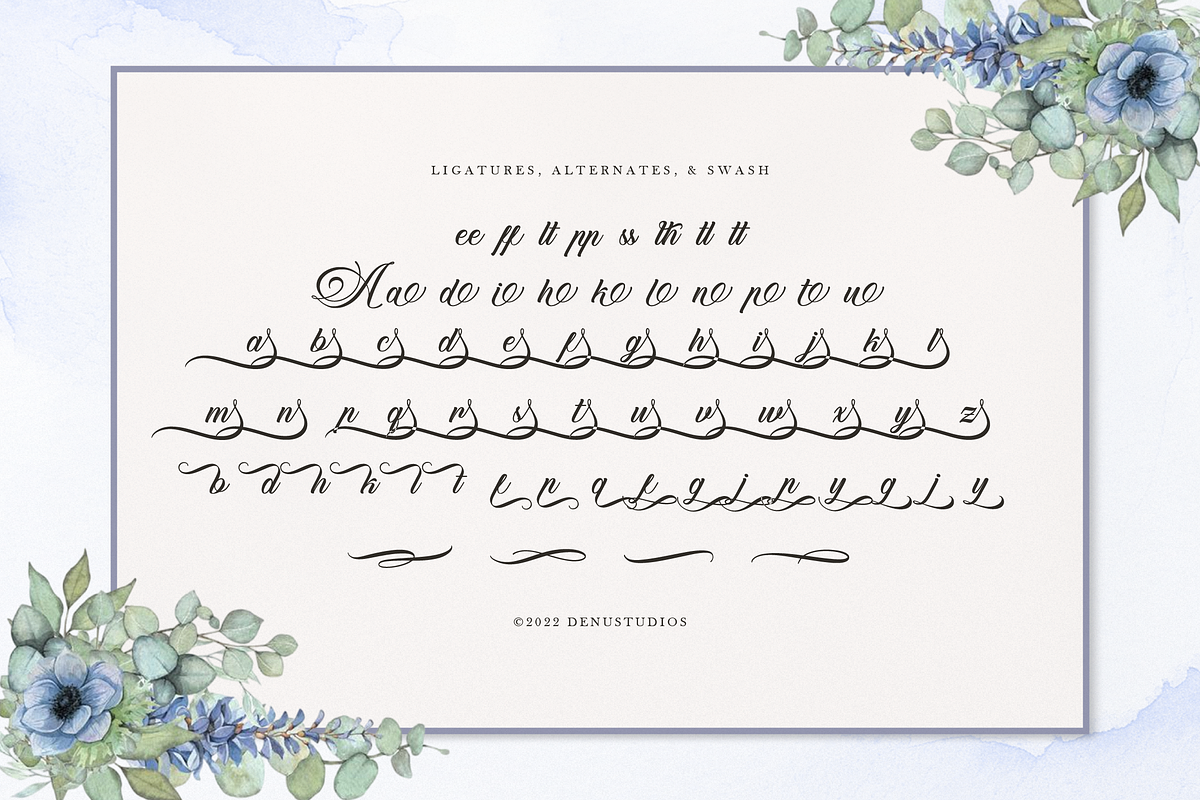 LIGATURES, ALTERNATES, & SWASH
ee ff lt pp ss th tl tt
Aao do io ho ko lo no po to uo
as bs cs ds es fs gs hs is js ks ls
ms ns p qs rs ss ts us vs ws xs ys zs
b d h k l t f p q f g j p y g j y
©2022 DENUSTUDIOS